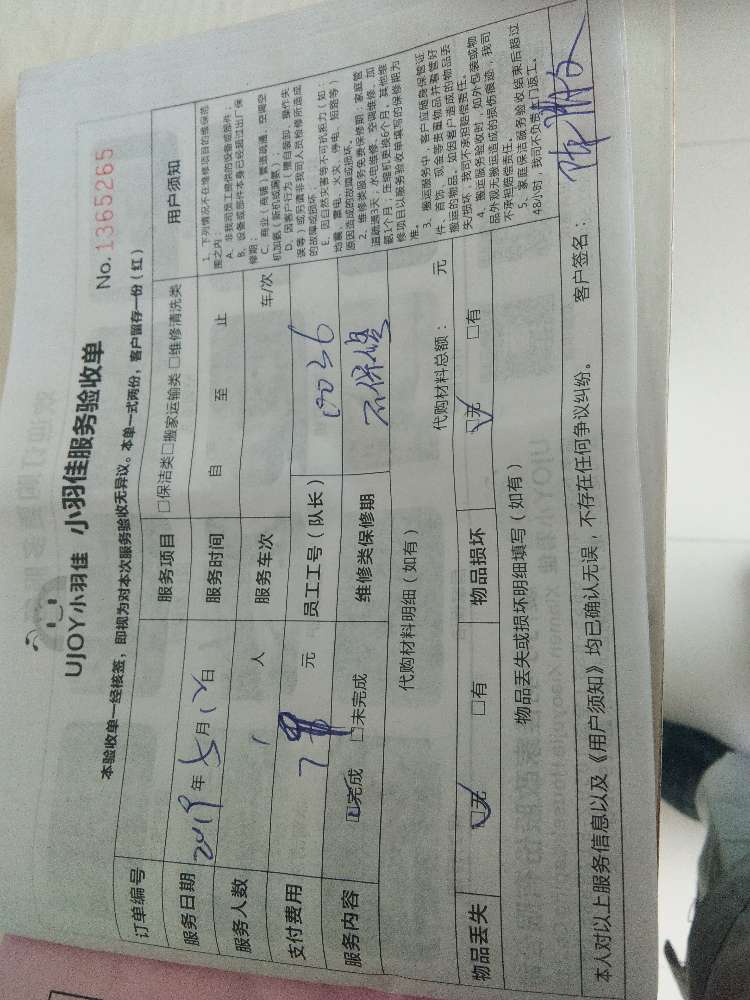 UJOY小羽佳 小羽佳服务验收单
No. 1365265
本验收单一经核签，即视为对本次服务验收无异议。本单一式两份，客户留存一份（红）
订单编号
服务项目 □保洁类□搬家运输类 □维修清洗类
服务日期 2019年5月12日
服务时间 自 至 止
服务人数 1 人
服务车次 车/次
支付费用 元
员工工号（队长） 0036
服务内容 ☑完成 □未完成
维修类保修期 不保修
代购材料明细（如有） 代购材料总额： 元
物品丢失 ☑无 □有
物品损坏 ☑无 □有
物品丢失或损坏明细填写（如有）
用户须知
1、下列情况不在维修项目的维保范
围之内：
A、非我司员工提供的设备或部件；
B、设备或部件本身已经超过出厂保
修期；
C、商业（商铺）管道疏通、空调空
机加氨（新机或漏氨）；
D、因客户行为（擅自装卸、操作失
误等）或另请非我司人员检修所造成
的故障或损坏
E、因自然灾害等不可抗拒力（如：
地震、雷电、火灾、停电、短路等）
原因造成的故障或损坏。
2、维修类服务免费保修期：家庭管
道疏通3天，水电维修、空调维修、加
氨1个月；压缩机更换6个月，其他维
修项目以服务验收单填写的保修期为
准。
3、搬运服务中，客户应随身保管证
件、首饰、现金等贵重物品并看管好
搬运的物品。如因客户造成的物品丢
失/损坏，我司不承担赔偿责任。
4、搬运服务验收时，如外包装或物
品外观无搬运造成的损伤痕迹，我司
不承担赔偿责任。
5、家庭保洁服务验收结束后超过
48小时，我司不负责上门返工。
本人对以上服务信息以及《用户须知》均已确认无误，不存在任何争议纠纷。 客户签名：